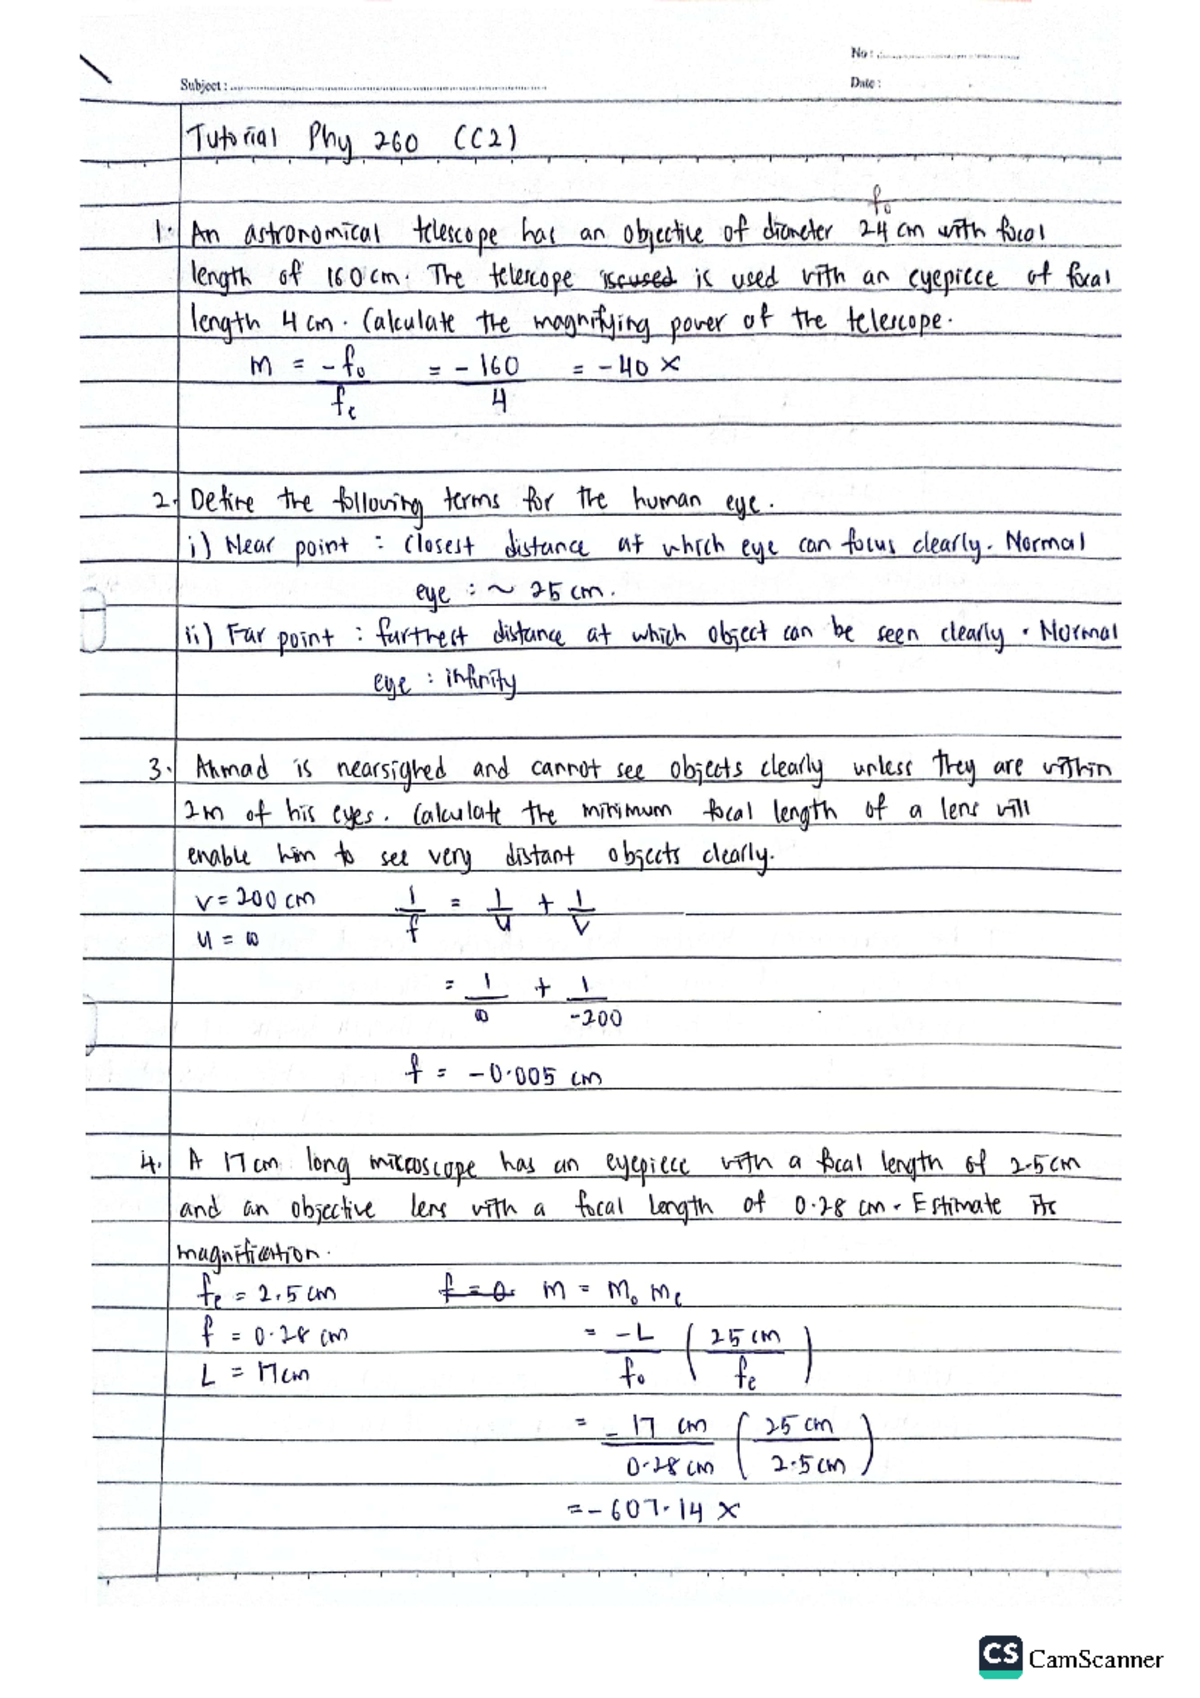 No :
Subject :
Date :
Tutorial Phy 260 (C2)
fo
1. An astronomical telescope has an objective of diameter 24 cm with focal
length of 160 cm. The telescope iscused is used with an eyepiece of focal
length 4 cm. Calculate the magnifying power of the telescope.
m = -fo/fe = -160/4 = -40 x
2. Define the following terms for the human eye.
i) Near point : closest distance at which eye can focus clearly. Normal
eye : ~ 25 cm.
ii) Far point : furthest distance at which object can be seen clearly. Normal
eye : infinity
3. Ahmad is nearsighed and cannot see objects clearly unless they are within
2m of his eyes. Calculate the minimum focal length of a lens will
enable him to see very distant objects clearly.
v = 200 cm 1/f = 1/u + 1/v
u = ∞
= 1/∞ + 1/-200
f = -0.005 cm
4. A 17 cm long microscope has an eyepiece with a focal length of 2.5 cm
and an objective lens with a focal length of 0.28 cm. Estimate its
magnification.
fe = 2.5 cm f = 0. m = mo me
f = 0.28 cm = -L/fo (25 cm/fe)
L = 17 cm
= -17 cm/0.28 cm (25 cm/2.5 cm)
= -607.14 x
CS CamScanner